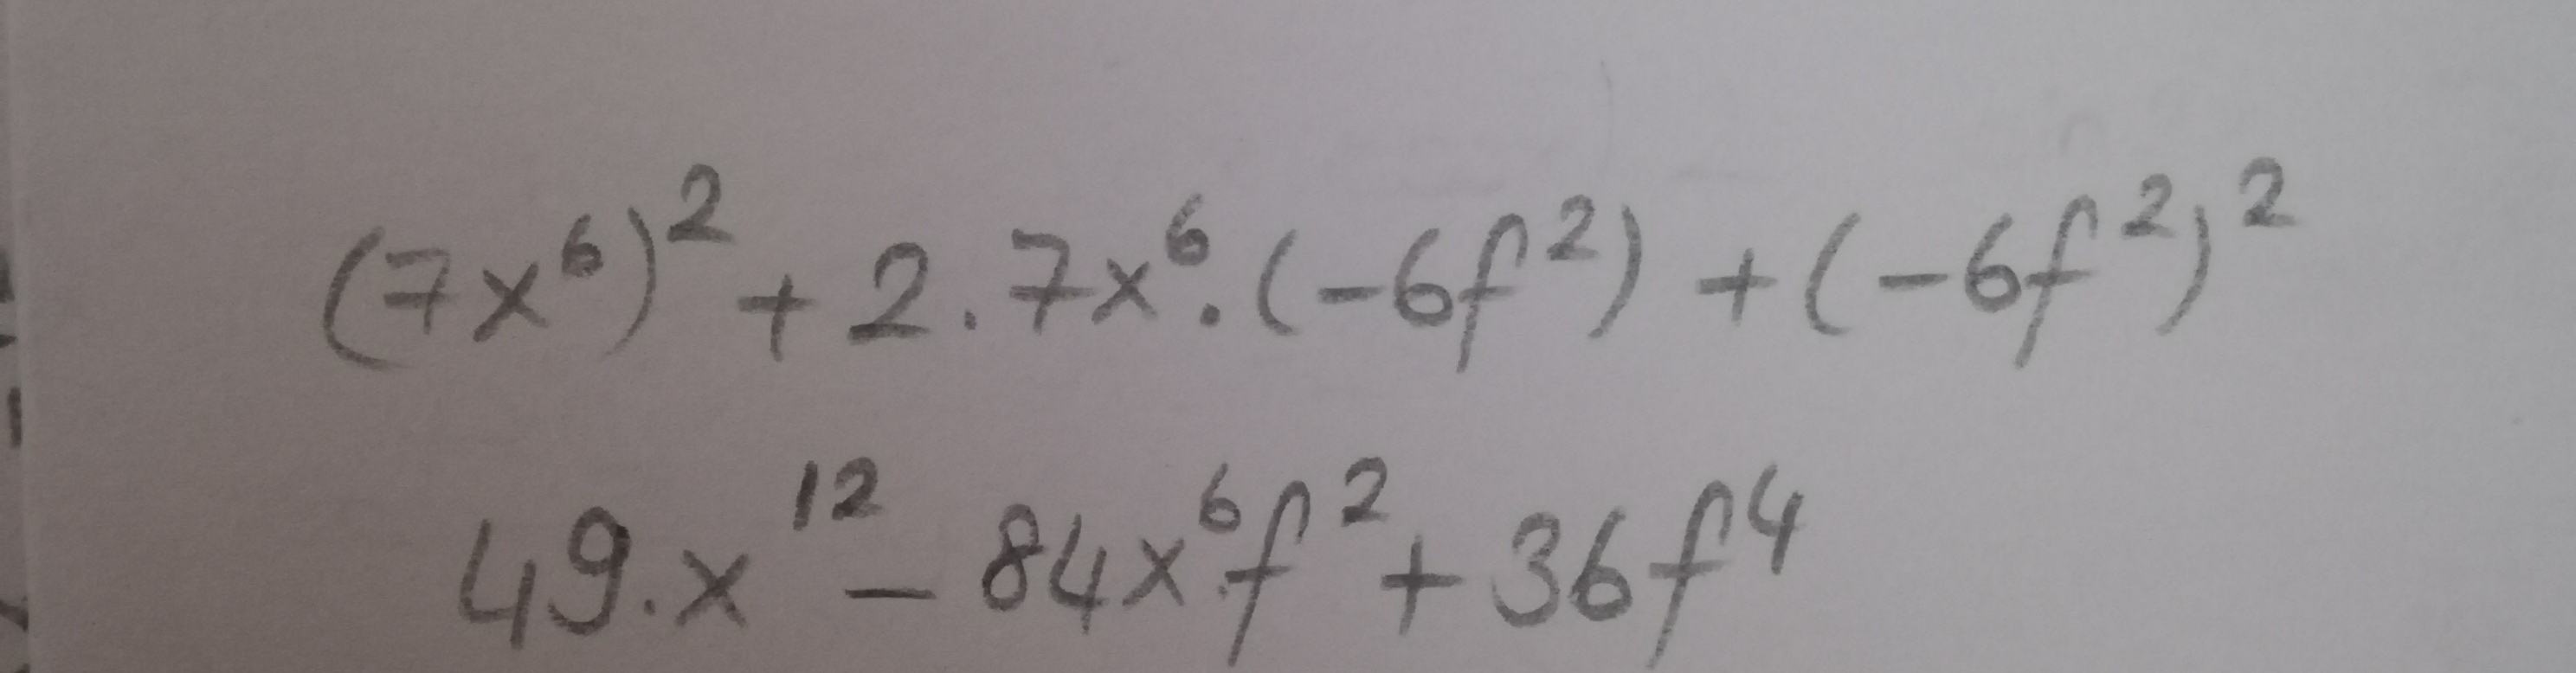 (7x⁶)² + 2 . 7x⁶ . (-6f²) + (-6f²)²
49.x¹² - 84x⁶.f² + 36f⁴